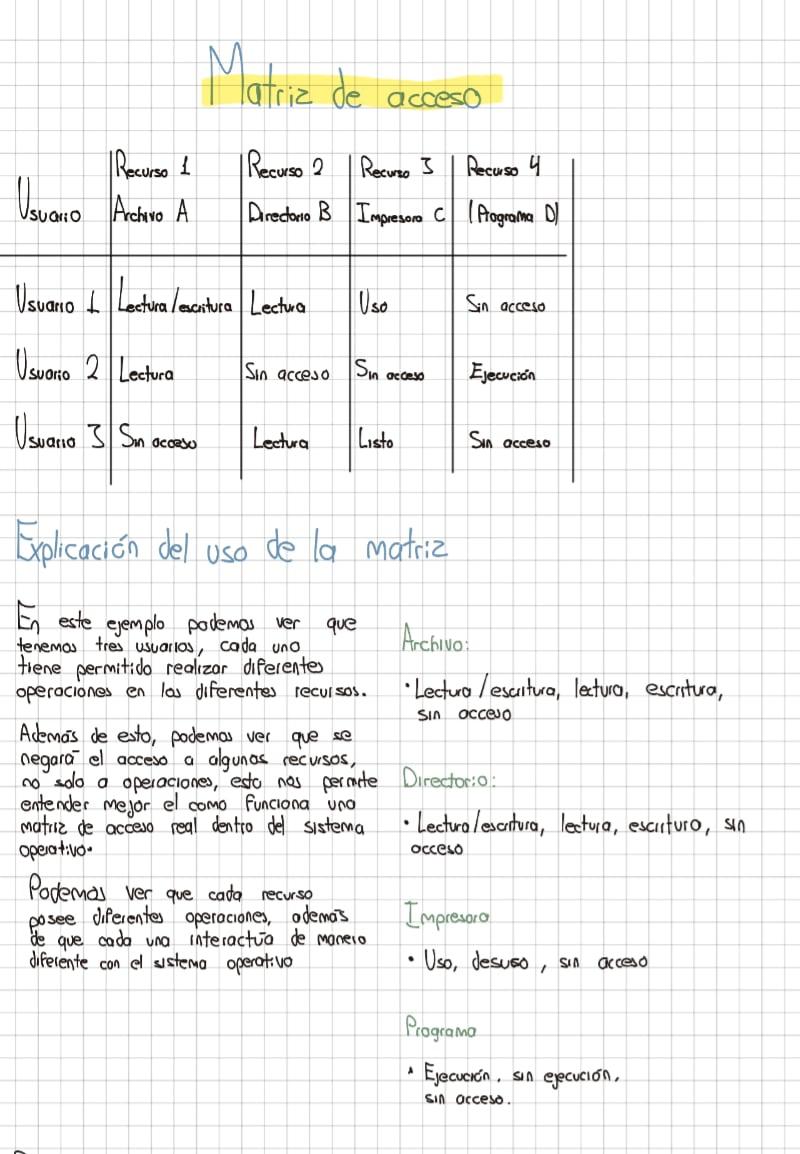 Matriz de acceso
Usuario Recurso 1 Archivo A Recurso 2 Directorio B Recurso 3 Impresora C Recurso 4 (Programa D)
Usuario 1 Lectura/escritura Lectura Uso Sin acceso
Usuario 2 Lectura Sin acceso Sin acceso Ejecución
Usuario 3 Sin acceso Lectura Listo Sin acceso
Explicación del uso de la matriz
En este ejemplo podemos ver que
tenemos tres usuarios, cada uno
tiene permitido realizar diferentes
operaciones en los diferentes recursos.
Además de esto, podemos ver que se
negará el acceso a algunos recursos,
no solo a operaciones, esto nos permite
entender mejor el como funciona una
matriz de acceso real dentro del sistema
operativo.
Podemos ver que cada recurso
posee diferentes operaciones, además
de que cada uno interactúa de manera
diferente con el sistema operativo
Archivo:
• Lectura/escritura, lectura, escritura,
sin acceso
Directorio:
• Lectura/escritura, lectura, escritura, sin
acceso
Impresora
• Uso, desuso, sin acceso
Programa
• Ejecución, sin ejecución,
sin acceso.